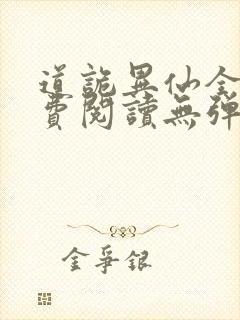 道詭異仙全
費閱讀無彈
金爭銀